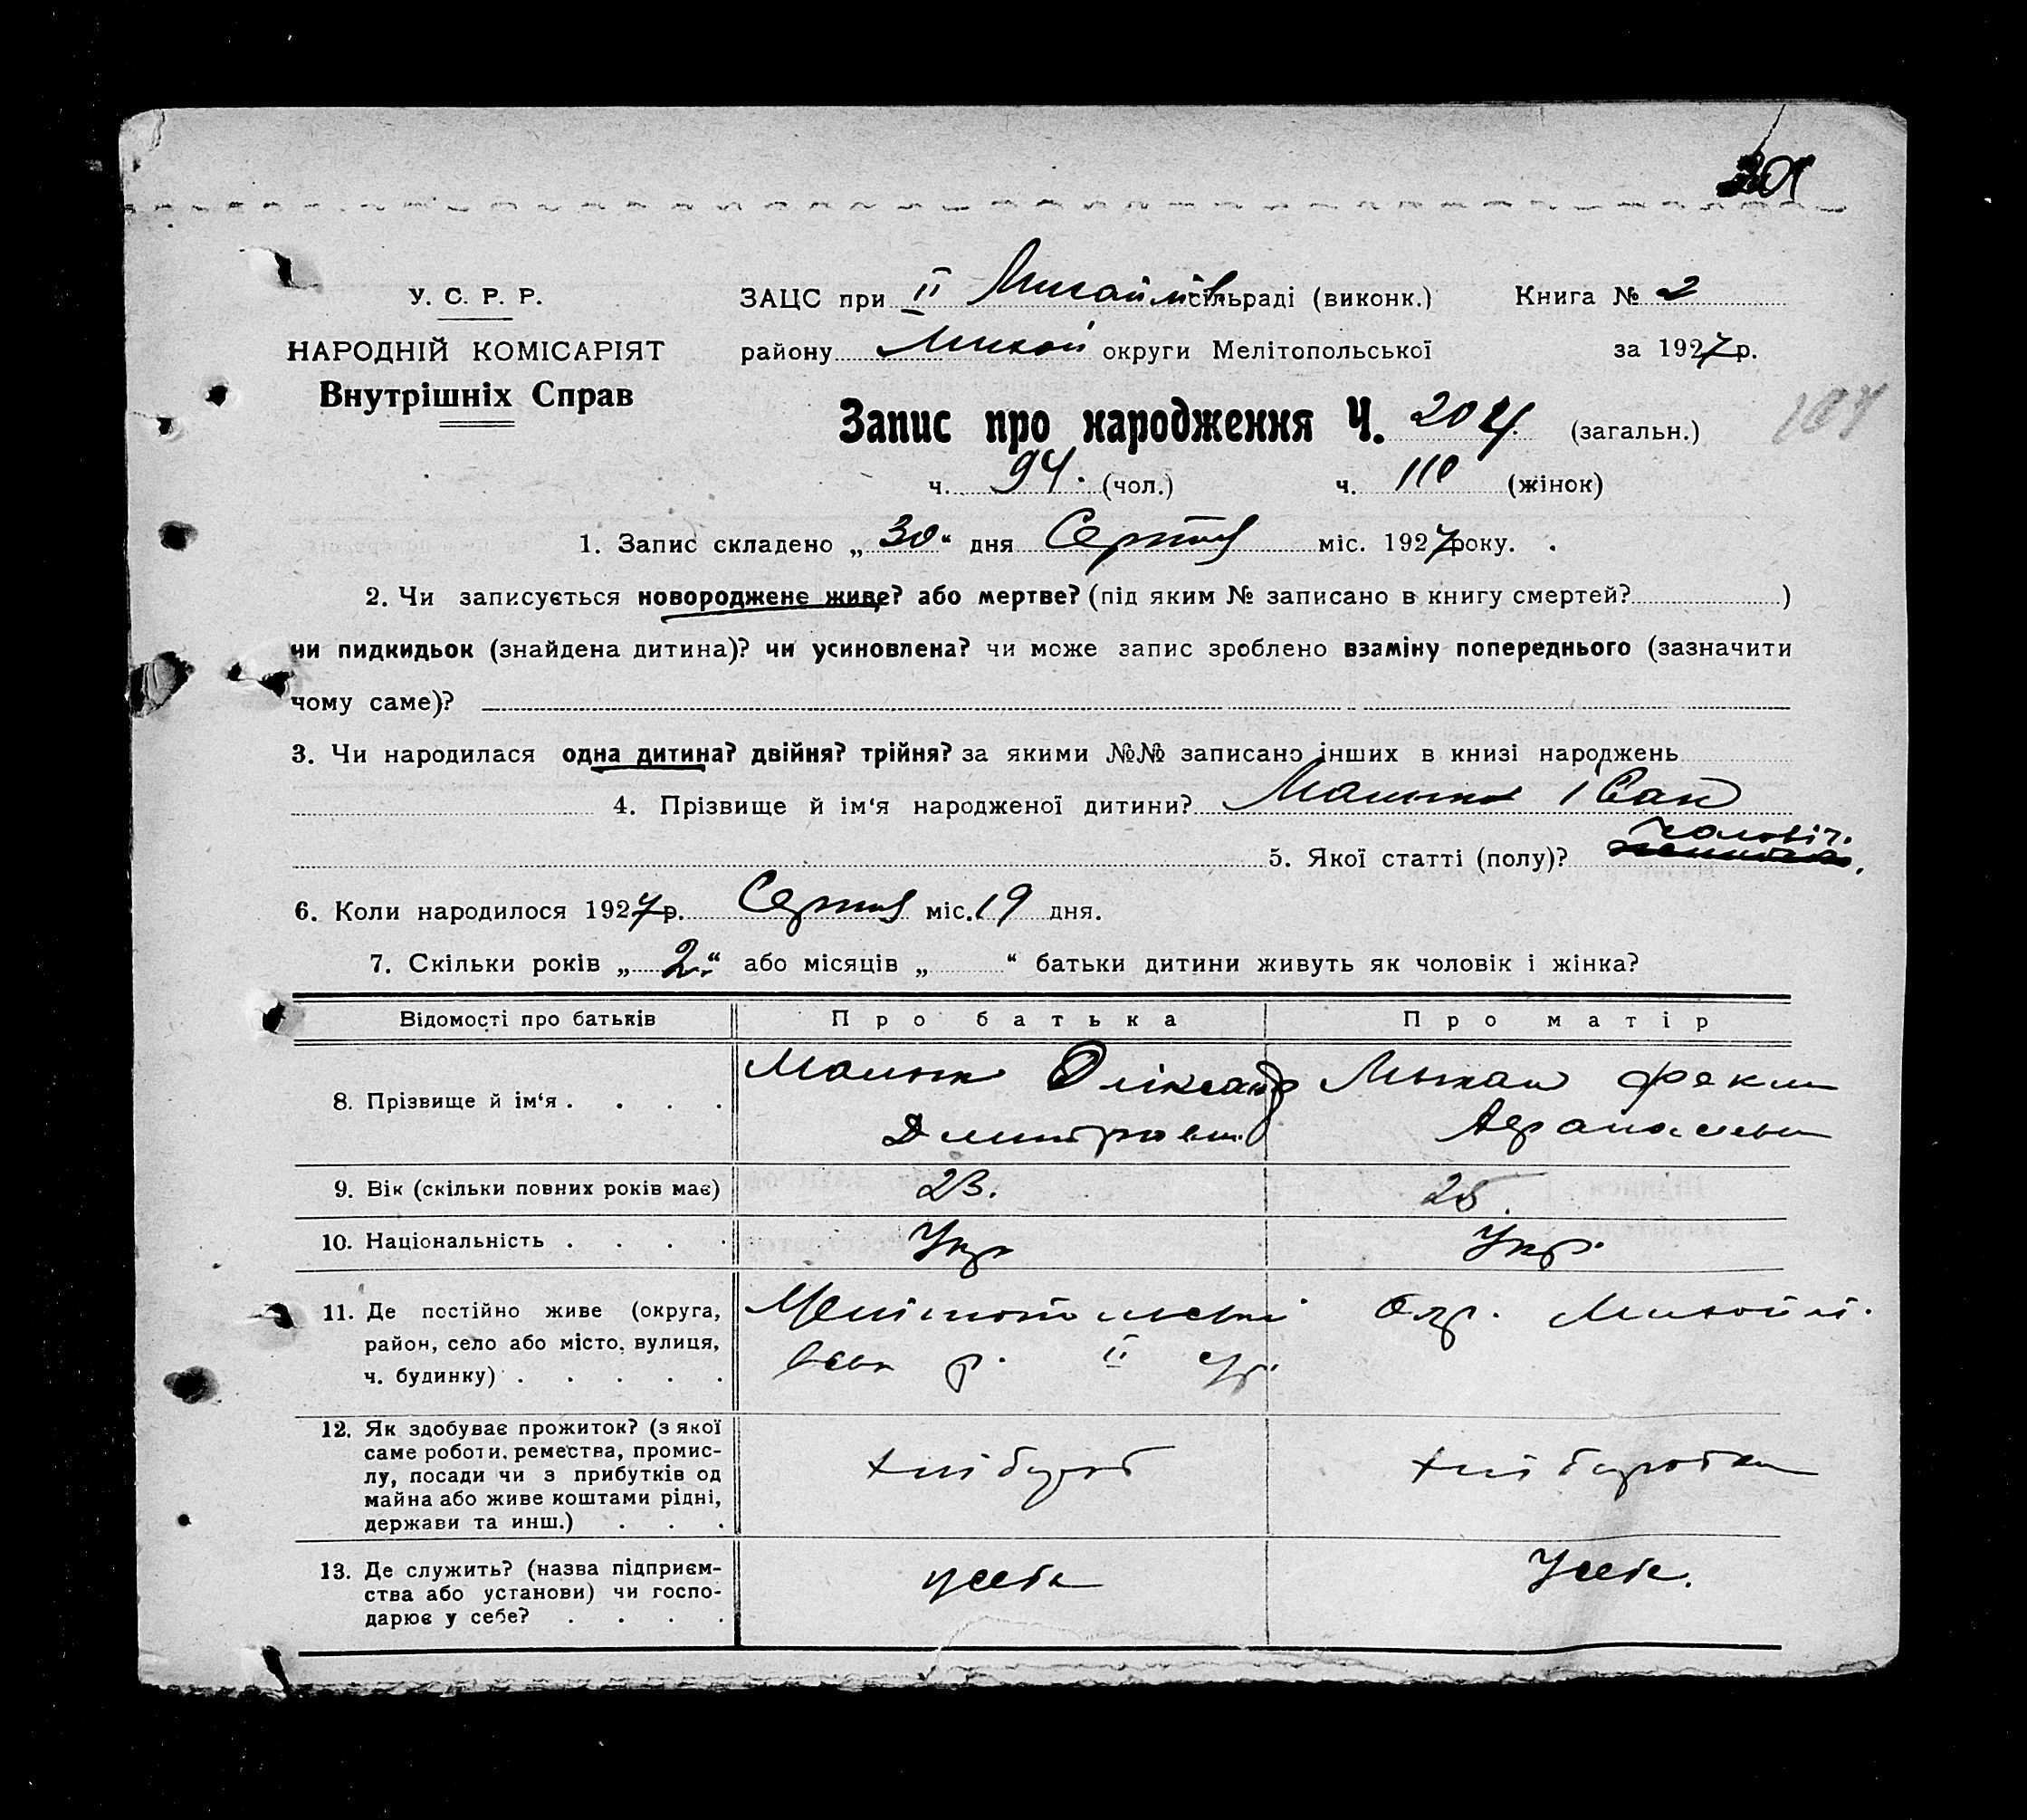 У. С. Р. Р.
НАРОДНІЙ КОМІСАРІЯТ
Внутрішніх Справ
ЗАЦС при II Михайлів сільраді (виконк.) Книга № 2
району Михай округи Мелітопольської за 1927 р.
Запис про народження Ч. 204. (загальн.)
ч. 94. (чол.) ч. 110 (жінок)
1. Запис складено „30“ дня Серпня міс. 1927 року.
2. Чи записується новороджене живе? або мертве? (під яким № записано в книгу смертей? )
чи пидкидьок (знайдена дитина)? чи усиновлена? чи може запис зроблено взаміну попереднього (зазначити
чому саме)?
3. Чи народилася одна дитина? двійня? трійня? за якими №№ записано інших в книзі народжень
4. Прізвище й ім‘я народженої дитини? Іван
5. Якої статті (полу)? чоловіч.
6. Коли народилося 1927 р. Серпня міс. 19 дня.
7. Скільки років „2“ або місяців „ “ батьки дитини живуть як чоловік і жінка?
Відомості про батьків Про батька Про матір
8. Прізвище й ім‘я . . . . Олександр
9. Вік (скільки повних років має) 23. 25.
10. Національність . . . . Укр Укр.
11. Де постійно живе (округа, район, село або місто, вулиця, ч. будинку) . . . . . Мелітопольські Окр. Михайлі-
вськ р. II
12. Як здобуває прожиток? (з якої саме роботи, ремества, промис-
лу, посади чи з прибутків од
майна або живе коштами рідні,
держави та инш.) . . . хлібороб хліборобка
13. Де служить? (назва підприєм-
ства або установи) чи госпо-
дарює у себе? . . . . у себе У себе.